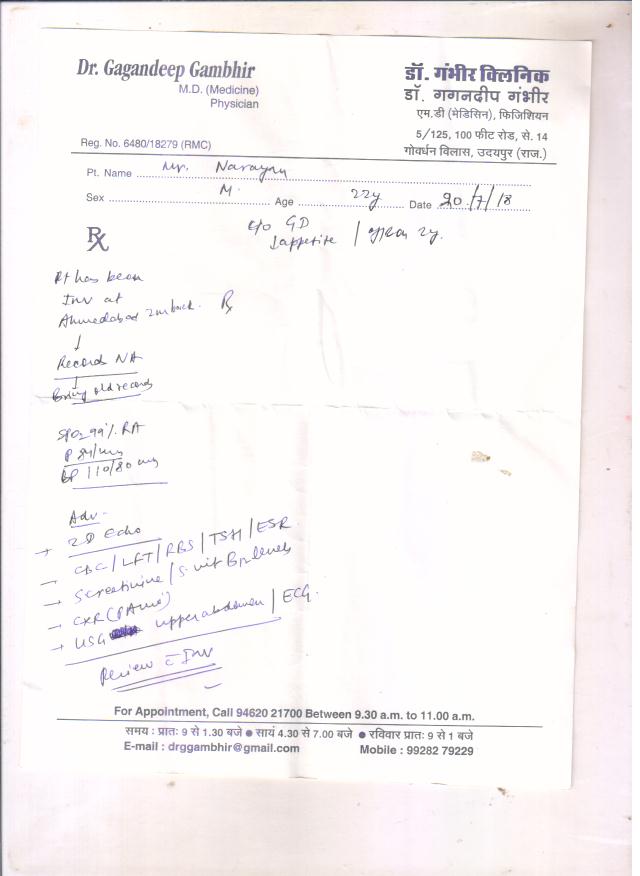 Dr. Gagandeep Gambhir
M.D. (Medicine)
Physician
Reg. No. 6480/18279 (RMC)
डॉ. गंभीर क्लिनिक
डॉ. गगनदीप गंभीर
एम.डी (मेडिसिन), फिजिशियन
5/125, 100 फीट रोड, से. 14
गोवर्धन विलास, उदयपुर (राज.)
Pt. Name Mr. Narayan
Sex M. Age 22y Date 20/7/18
℞
c/o GD
↓appetite /
Pt has been
Inv at
Ahmedabad 2m back. ℞
↓
Records NA
↓
Bring old records
SpO2 99% RA
P 84/m
BP 110/80 m
Adv -
→ 2D Echo
→ CBC / LFT / RBS / TSH / ESR
→ S creatinine / S. vit B12 levels
→ CXR (PA view)
→ USG upper abdomen / ECG.
Review c̄ Inv
For Appointment, Call 94620 21700 Between 9.30 a.m. to 11.00 a.m.
समय : प्रातः 9 से 1.30 बजे ● सायं 4.30 से 7.00 बजे ● रविवार प्रातः 9 से 1 बजे
E-mail : drggambhir@gmail.com Mobile : 99282 79229